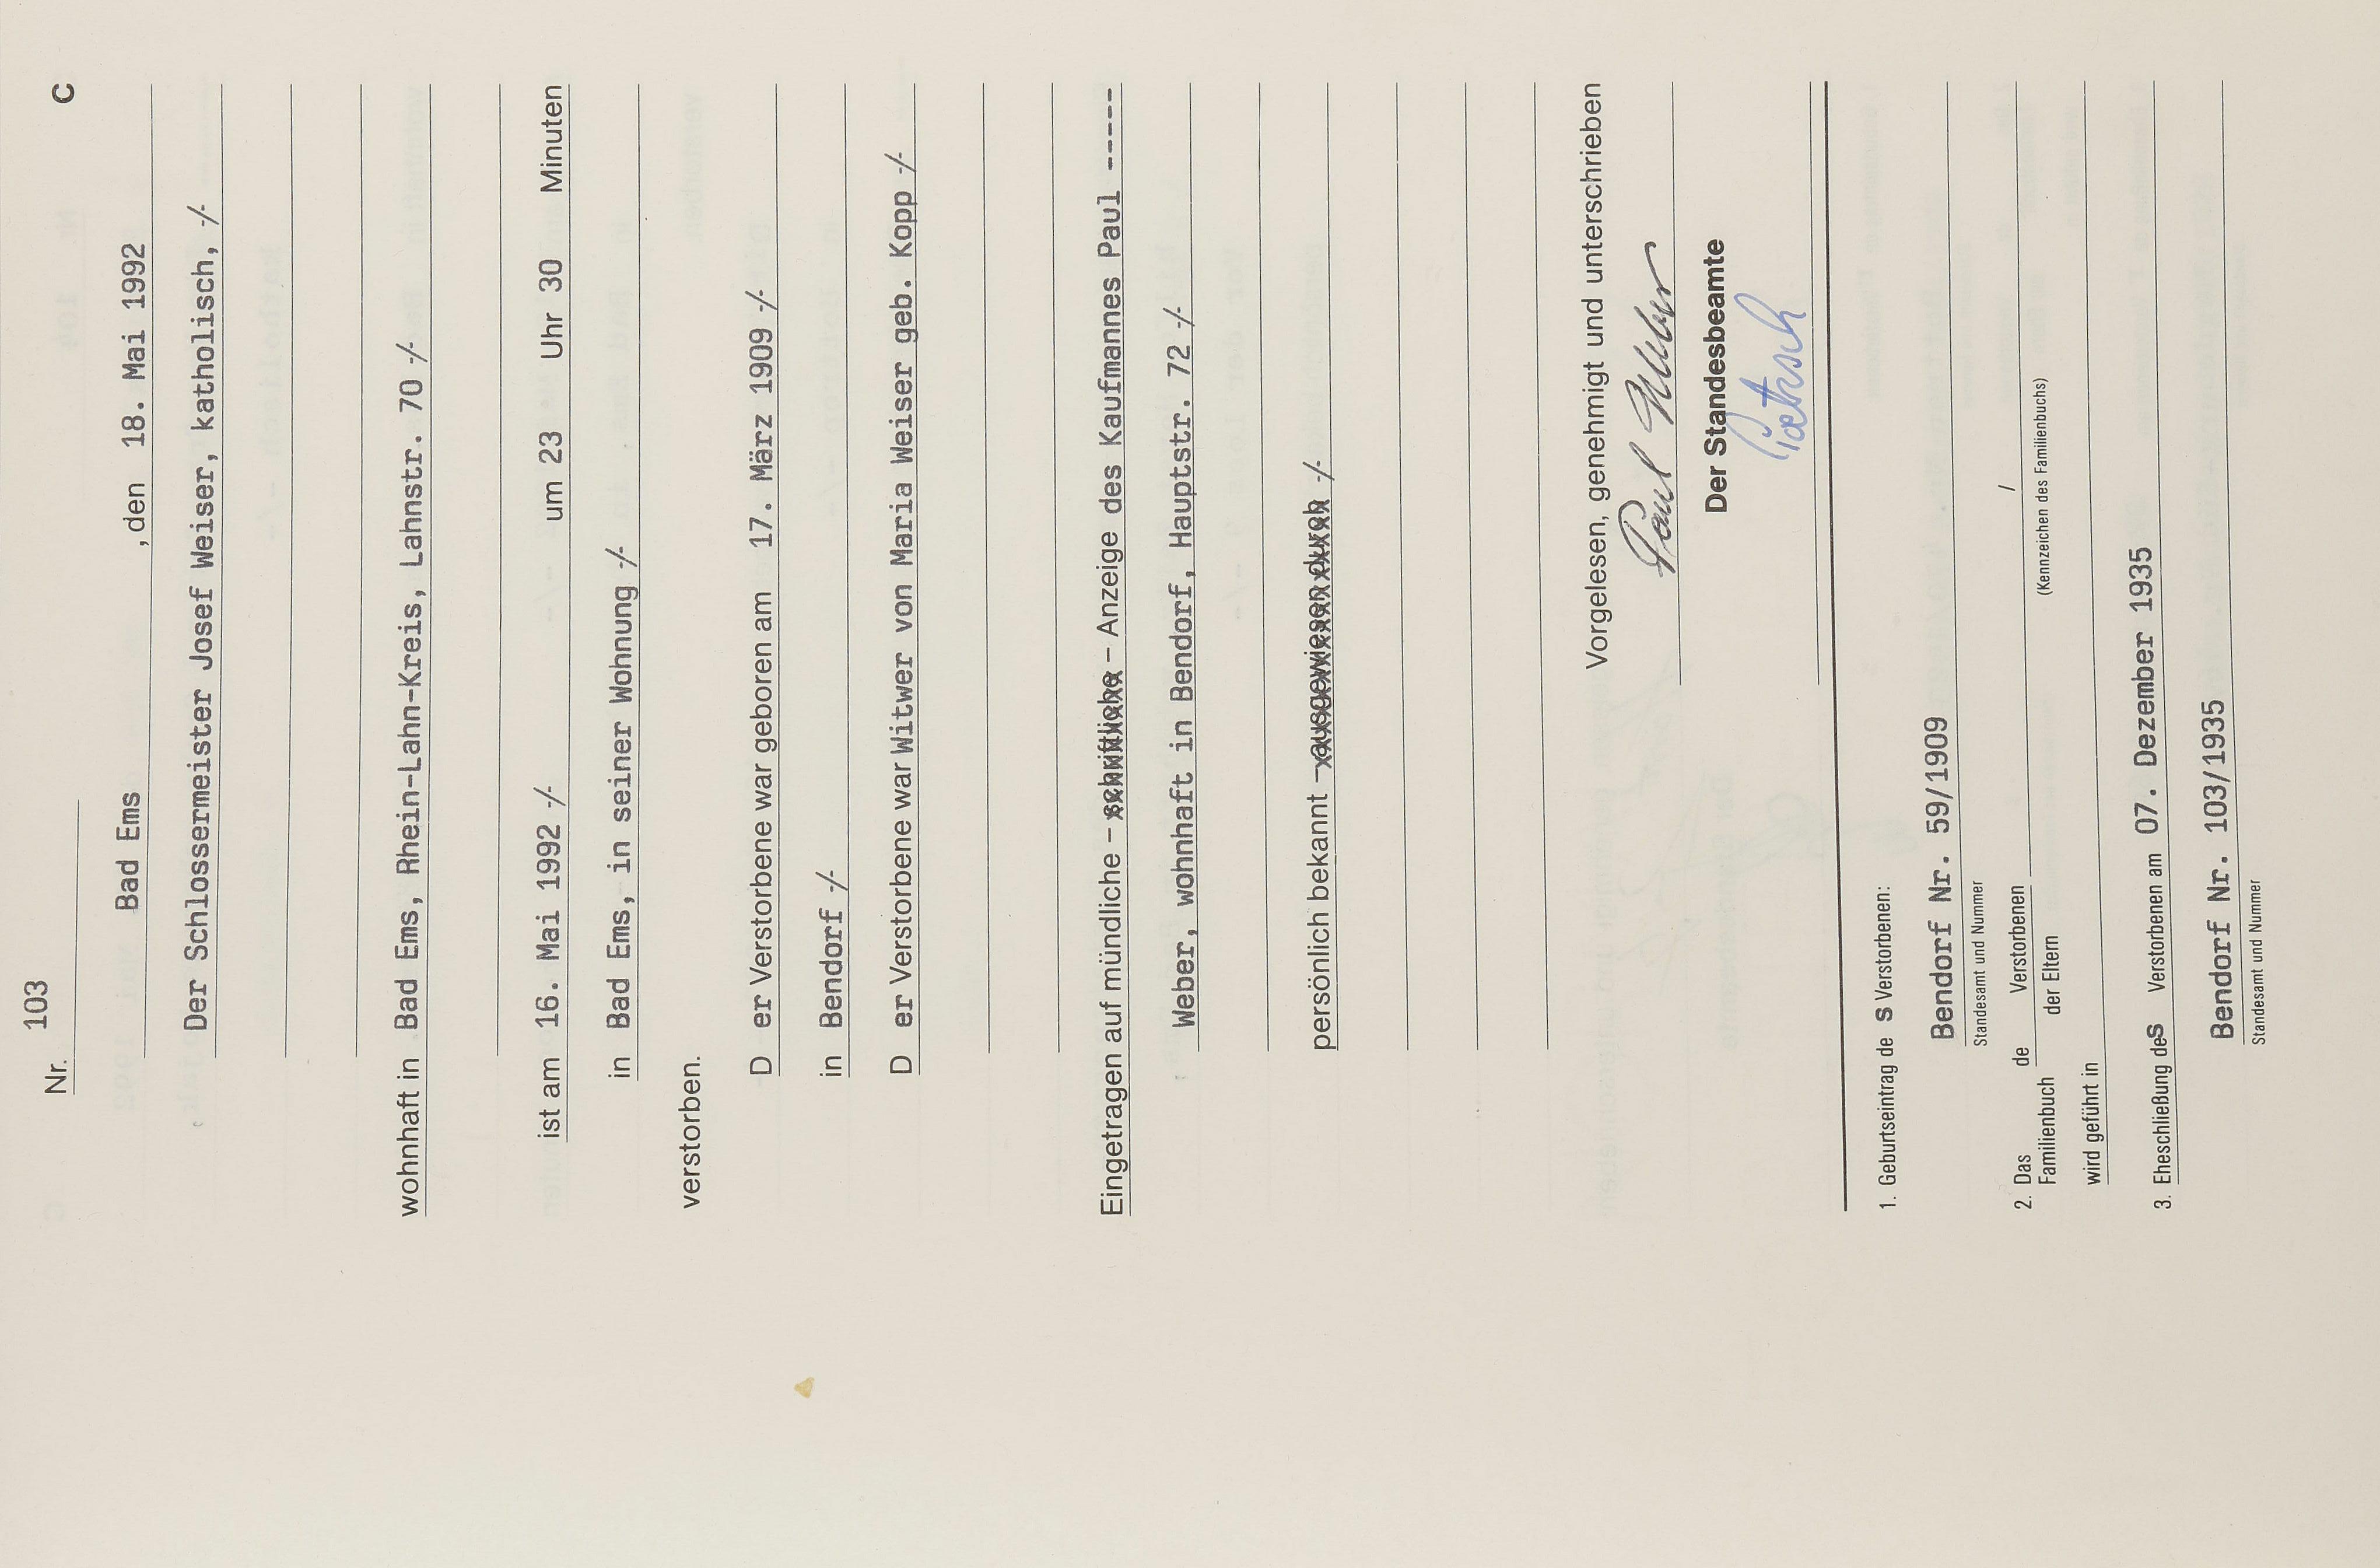 C
Nr. 103
Bad Ems , den 18. Mai 1992
Der Schlossermeister Josef Weiser, katholisch, -/-
wohnhaft in Bad Ems, Rhein-Lahn-Kreis, Lahnstr. 70 -/-
ist am 16. Mai 1992 -/- um 23 Uhr 30 Minuten
in Bad Ems, in seiner Wohnung -/-
verstorben.
D er Verstorbene war geboren am 17. März 1909 -/-
in Bendorf -/-
D er Verstorbene war Witwer von Maria Weiser geb. Kopp -/-
Eingetragen auf mündliche – schriftliche – Anzeige des Kaufmannes Paul -----
Weber, wohnhaft in Bendorf, Hauptstr. 72 -/-
persönlich bekannt – ausgewiesen durch -/-
Vorgelesen, genehmigt und unterschrieben
Paul Weber
Der Standesbeamte
1. Geburtseintrag de s Verstorbenen:
Bendorf Nr. 59/1909
Standesamt und Nummer
2. Das Familienbuch de Verstorbenen / der Eltern
(Kennzeichen des Familienbuchs)
wird geführt in
3. Eheschließung des Verstorbenen am 07. Dezember 1935
Bendorf Nr. 103/1935
Standesamt und Nummer